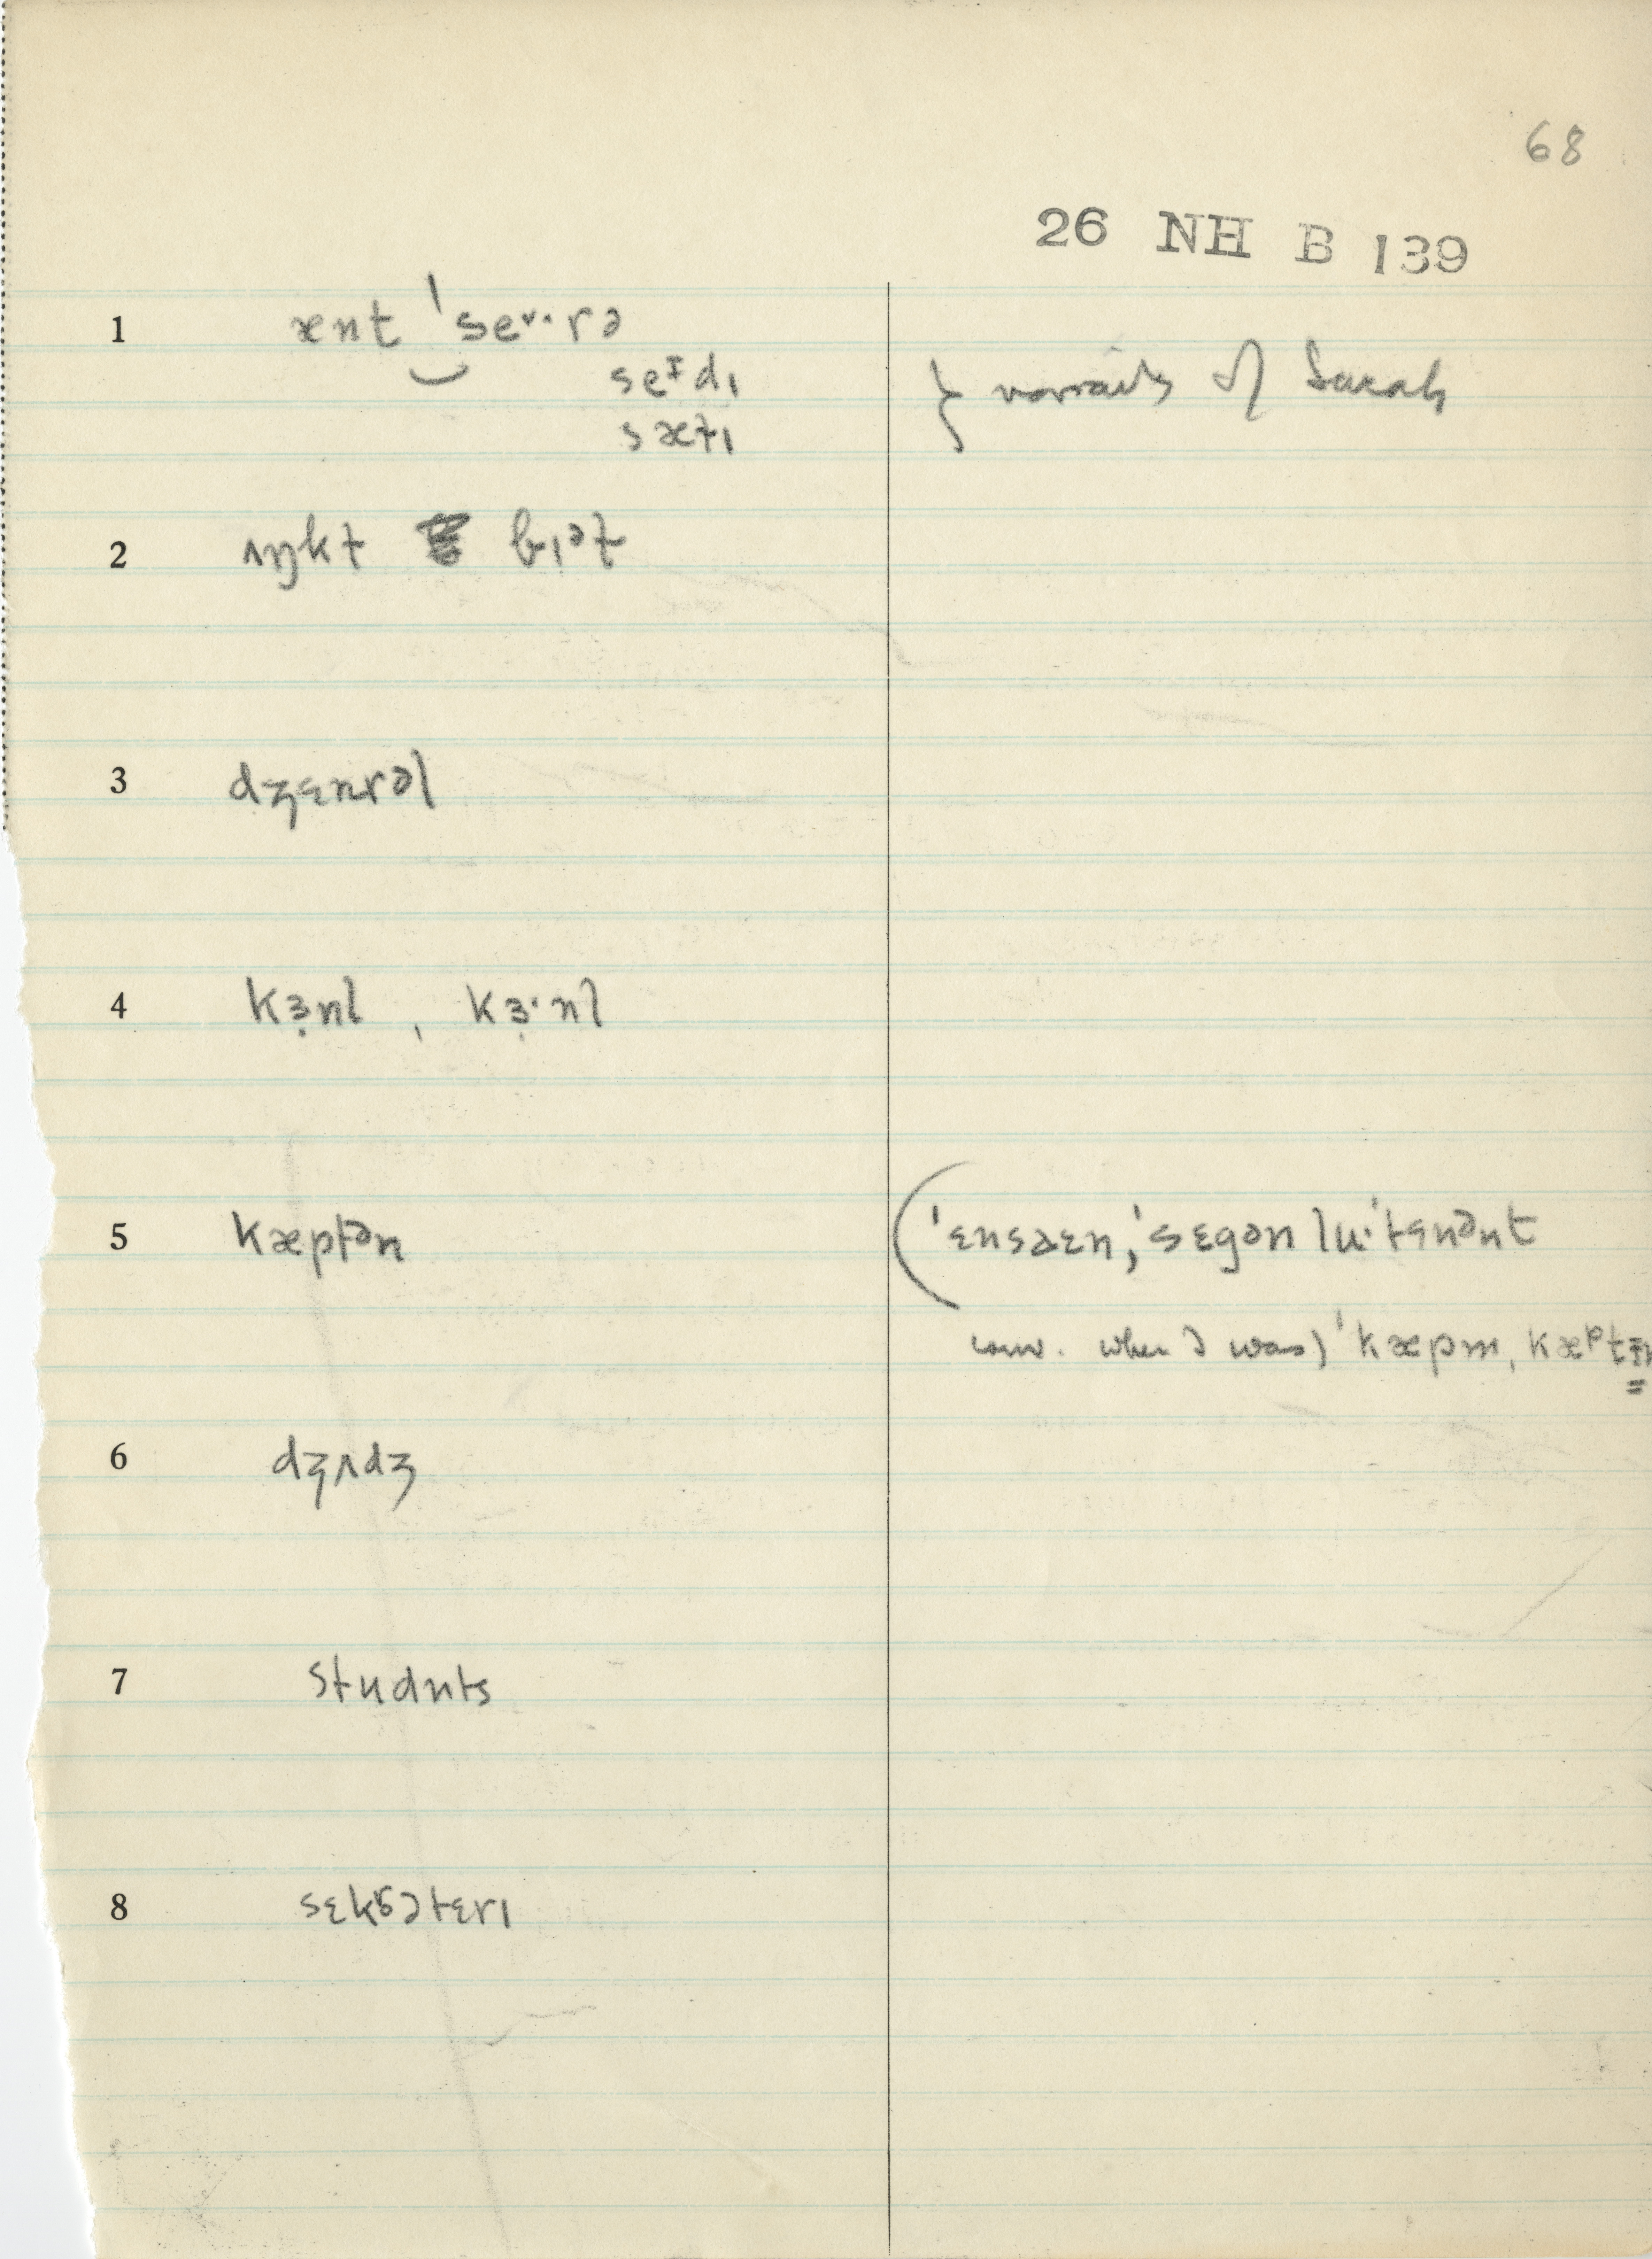 68
26 NH B 139
1 ænt ˈse˅·rə
seɪdɪ
sætɪ } variants of Sarah
2 ʌŋkt bɪət
3 dʒɛnrəl
4 kɜ̣nl , kɜ̣·nl
5 kæptən (ˈɛnsaɛn, ˈsɛgən luˈtɛnənt
when I was) ˈkæpm, kæᵖtɪn
6 dʒʌdʒ
7 studnts
8 sɛkrətɛrɪ